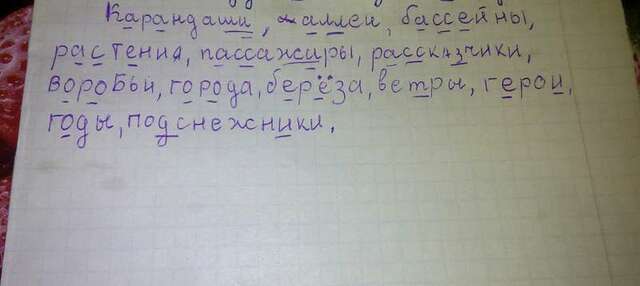 Карандаши, аллеи, бассейны,
растения, пассажиры, рассказчики,
воробьи, города, берёза, ветры, герои,
годы, подснежники.